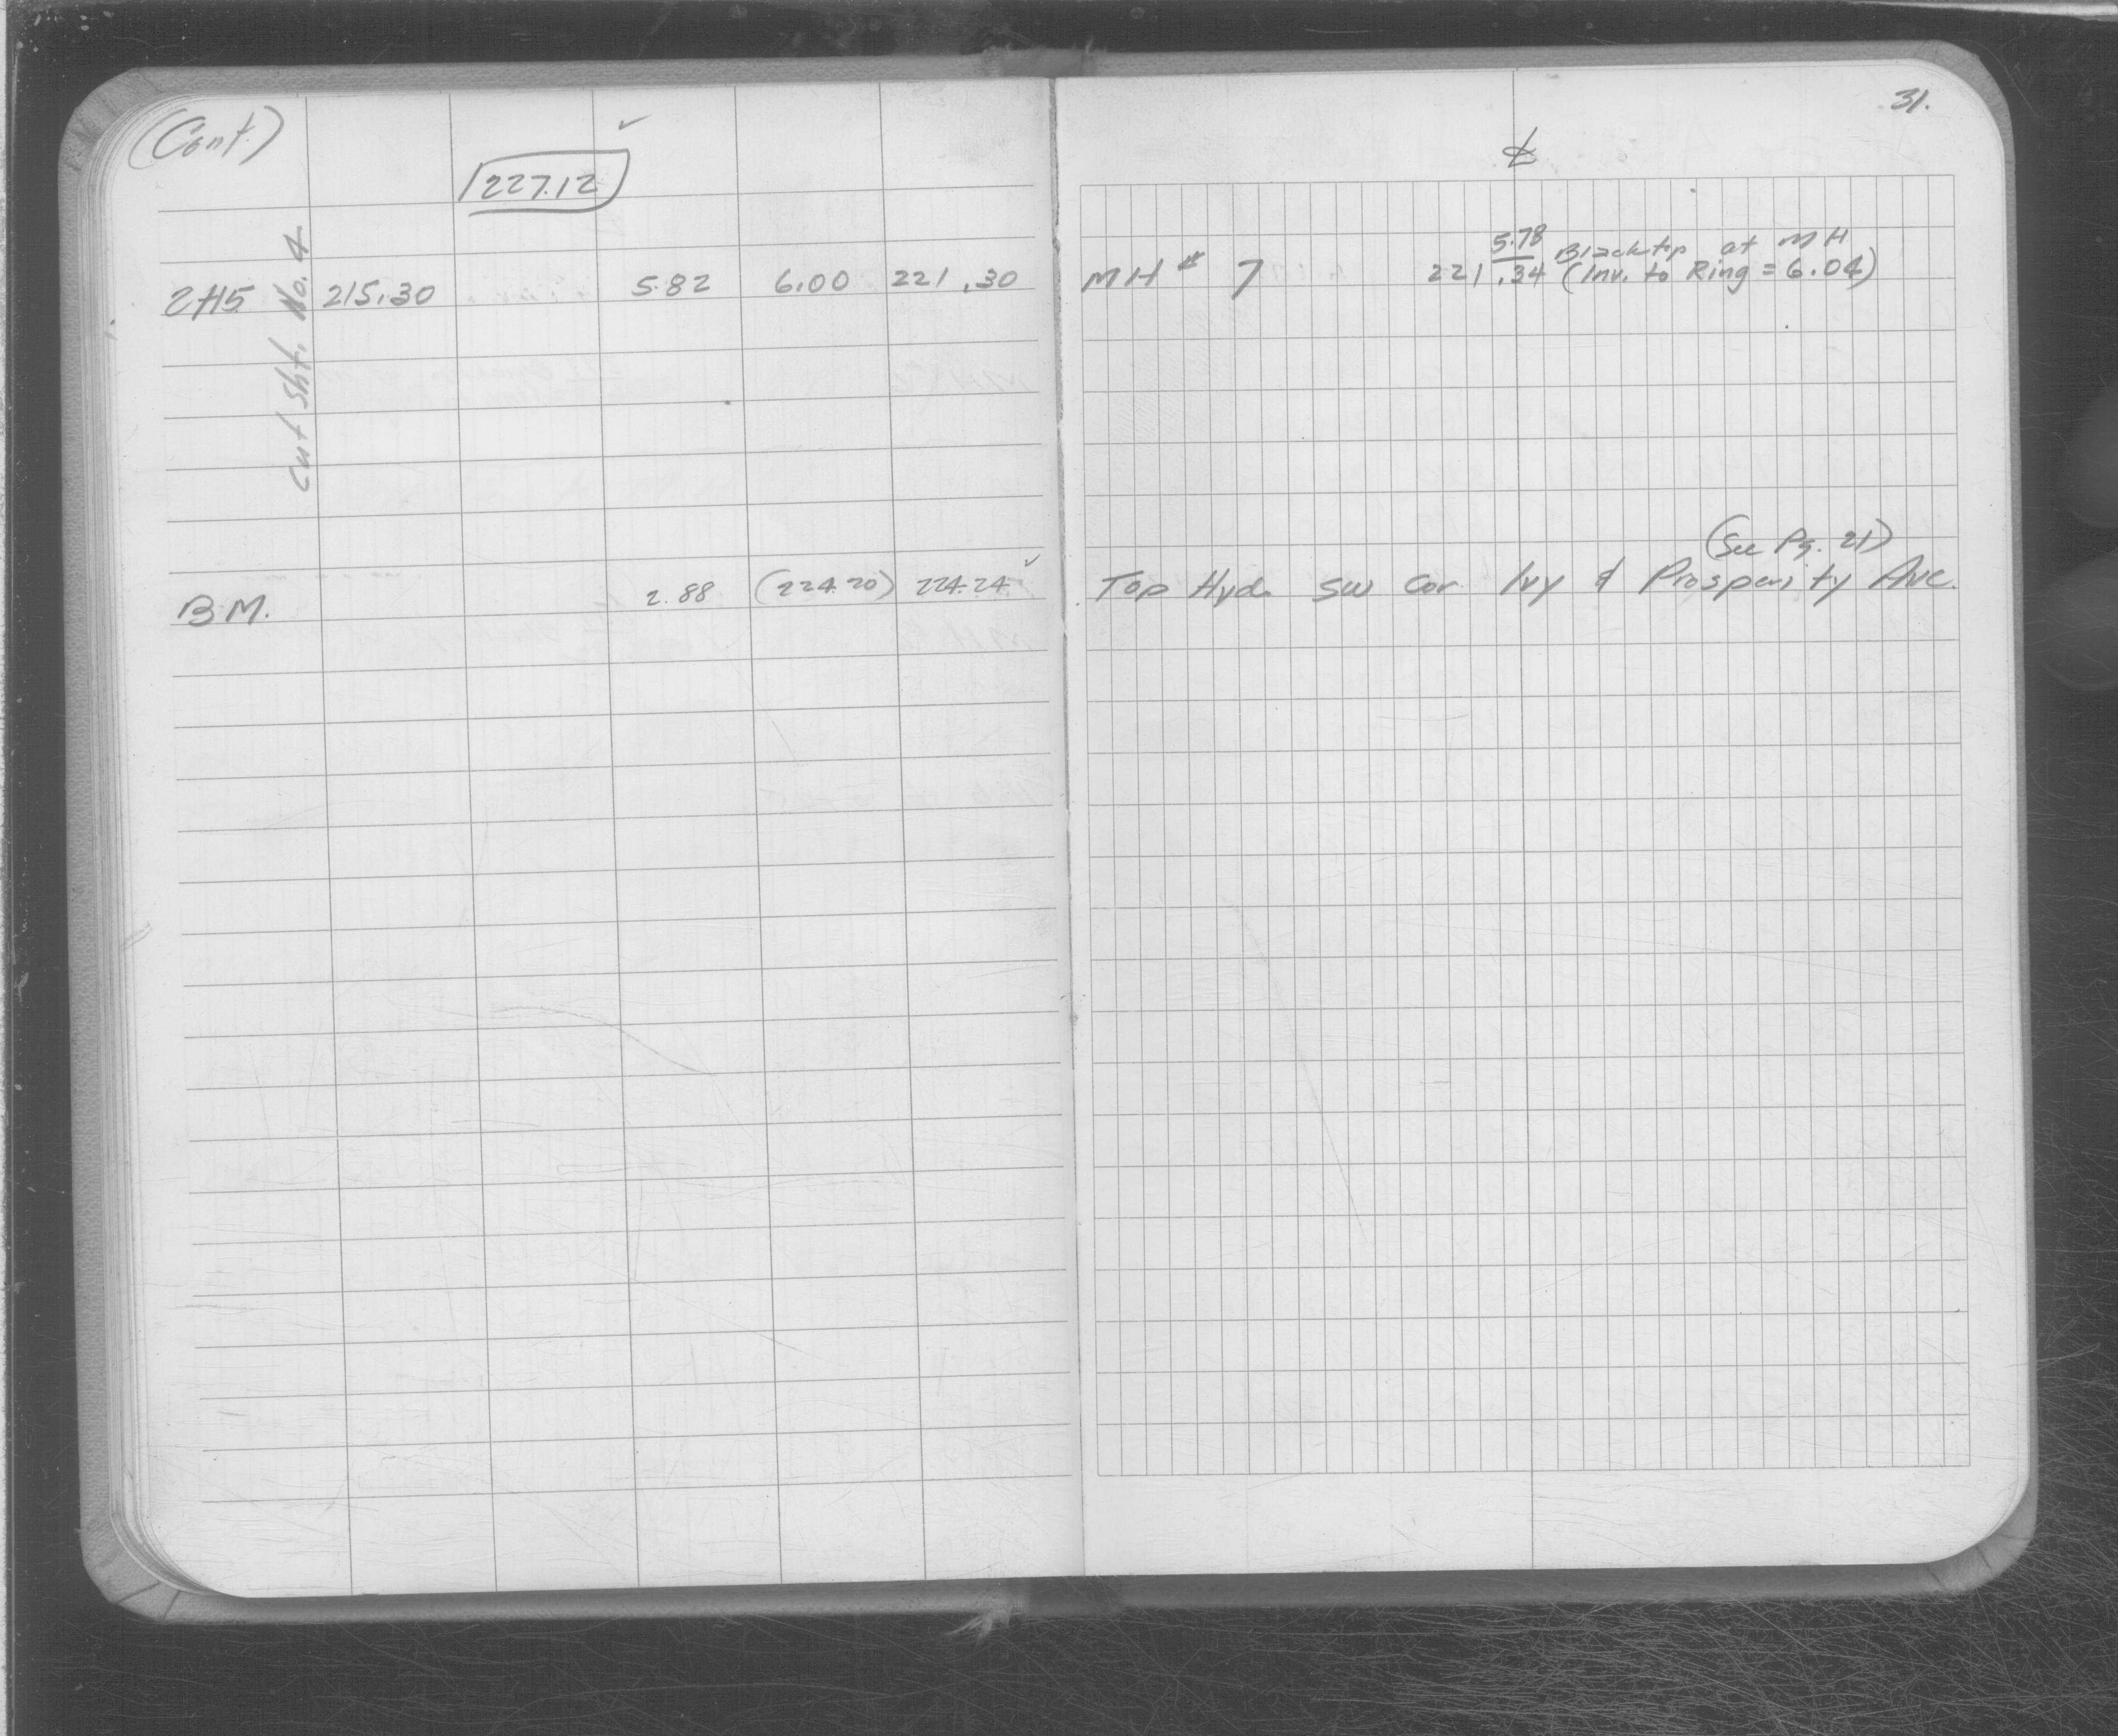 (Cont.)
227.12 ✓
2+15 215.30 5.82 6.00 221.30
Cut Sht. No. 4
B.M. 2.88 (224.20) 224.24 ✓
31.
℄
5.78 Blacktop at MH
MH # 7 221.34 (Inv. to Ring = 6.04)
(See Pg. 21)
Top Hyd. SW Cor. Ivy & Prosperity Ave.